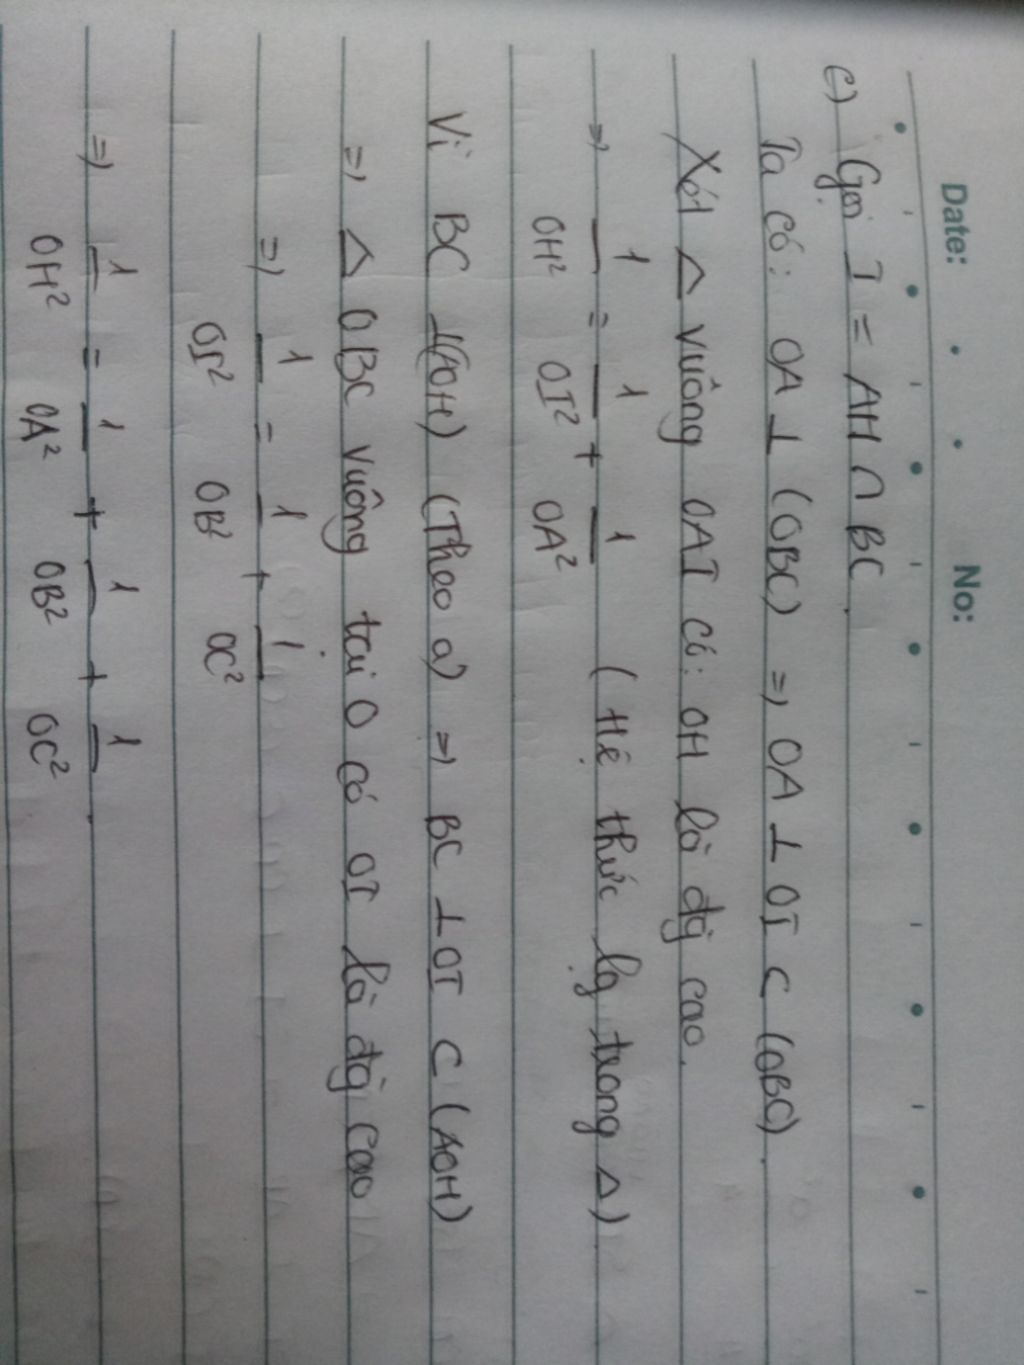 Date: No:
c) Gọi I = AH ∩ BC.
Ta có: OA ⊥ (OBC) => OA ⊥ OI ⊂ (OBC).
Xét △ vuông OAI có: OH là đg cao.
=> 1/OH² = 1/OI² + 1/OA² (Hệ thức lg trong △)
Vì BC ⊥ (AOH) (Theo a) => BC ⊥ OI ⊂ (AOH)
=> △ OBC vuông tại O có OI là đg cao
=> 1/OI² = 1/OB² + 1/OC²
=> 1/OH² = 1/OA² + 1/OB² + 1/OC².